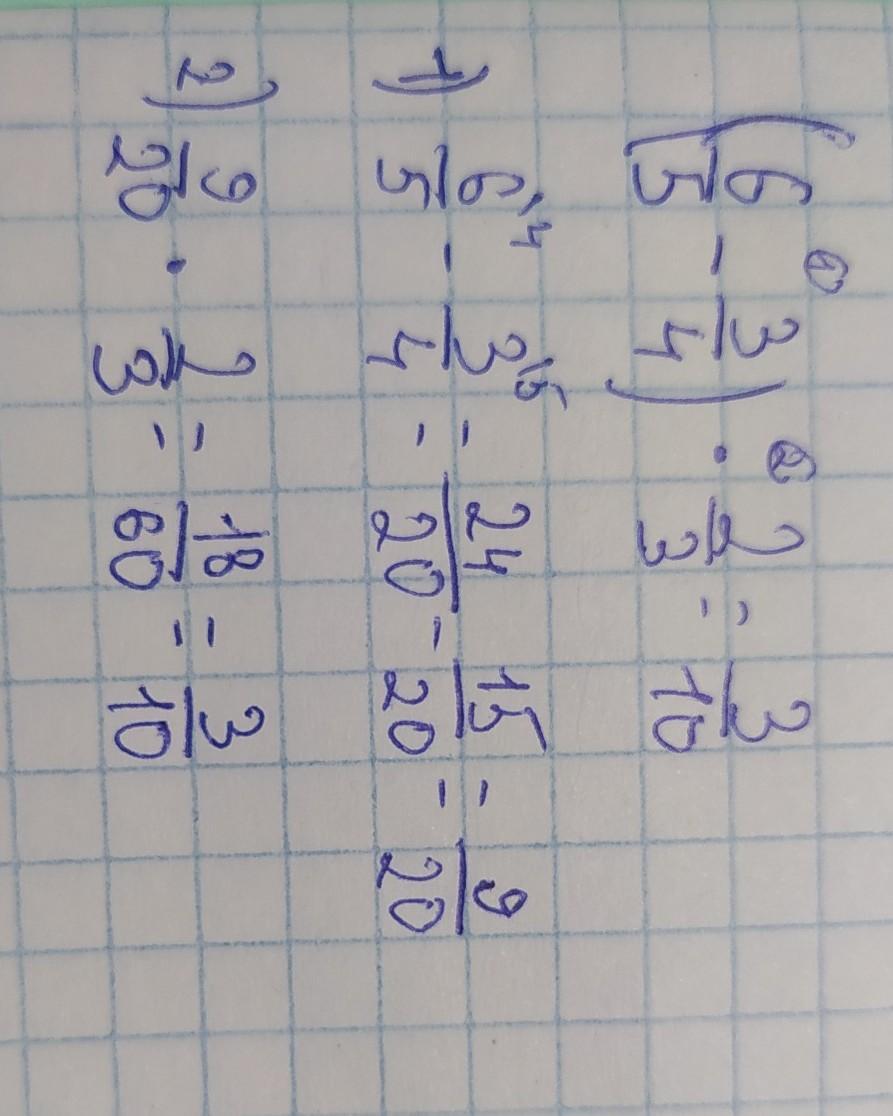 (6/5 - 3/4) · 2/3 = 3/10
1) 6\4/5 - 3\5/4 = 24/20 - 15/20 = 9/20
2) 9/20 · 2/3 = 18/60 = 3/10